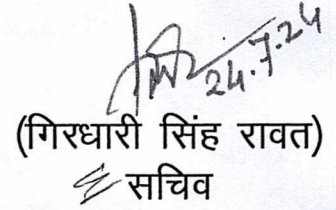 24.7.24
(गिरधारी सिंह रावत)
सचिव